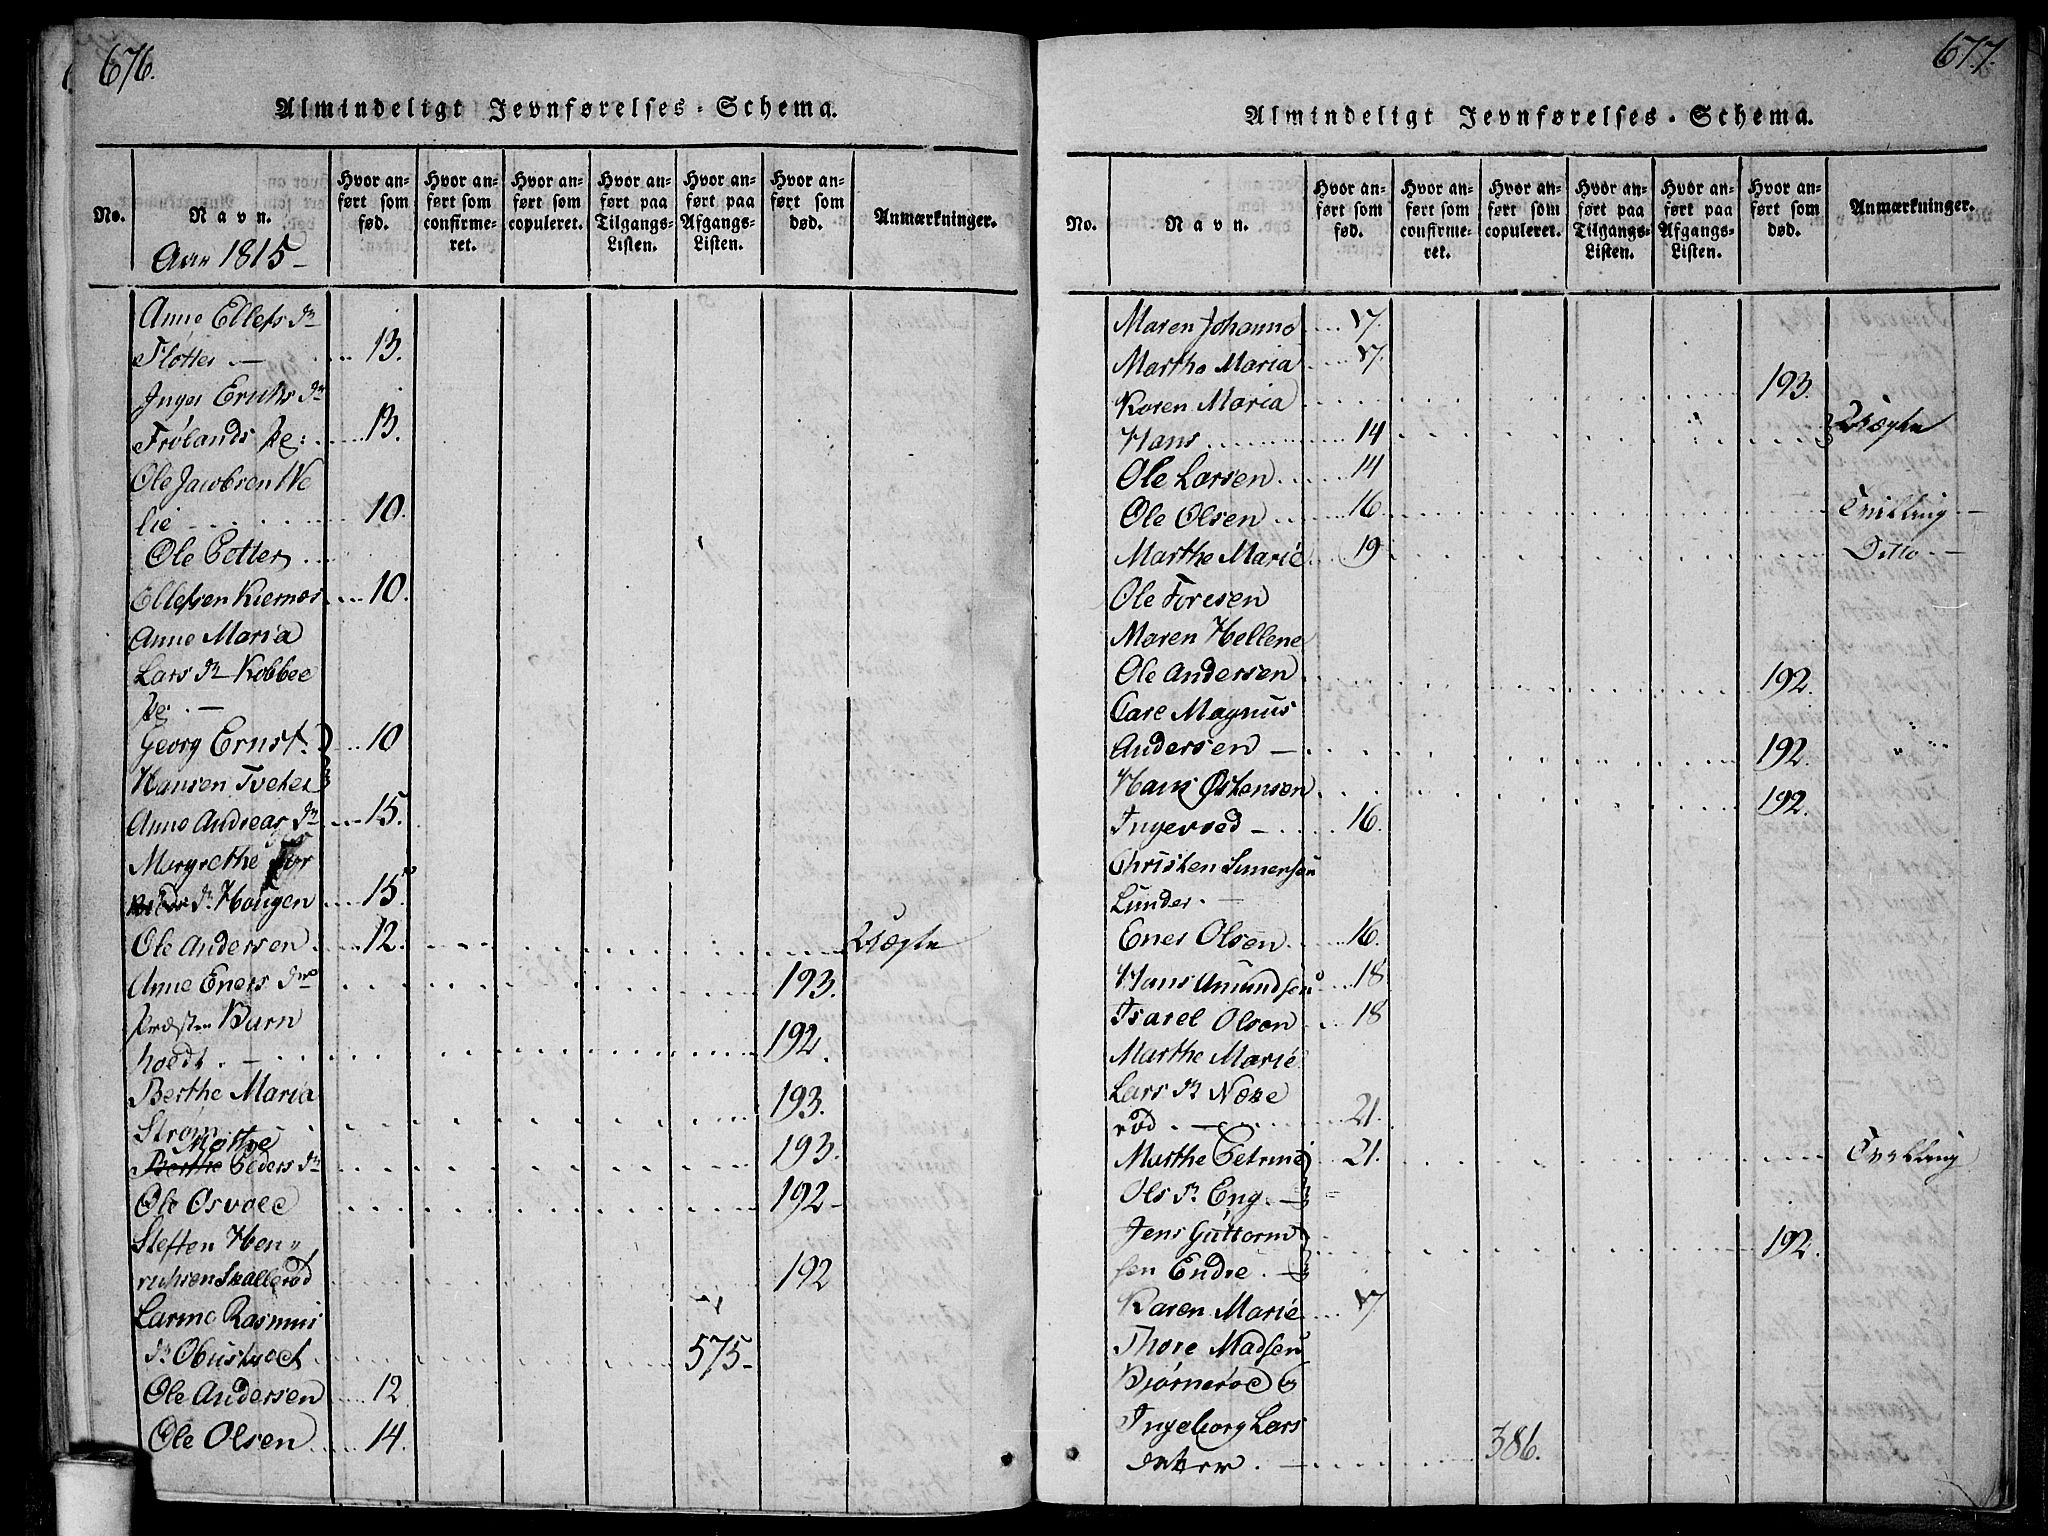 676.
Almindeligt Jevnførelses-Schema.
No.
Navn.
Hvor anført som fød.
Hvor anført som confirmeret.
Hvor anført som copuleret.
Hvor anført paa Tilgangs-Listen.
Hvor anført paa Afgangs-Listen.
Hvor anført som død.
Anmærkninger.
Aar 1815
Anne Ellefs Dr
Fløtter — 13.
Inger Dr
Frølands 13.
Ole Jacobsen We
lie 10.
Ole Petter
Ellefsen 10.
Anne Maria
Lars Dr Kobbee
Georg Ernst 10
Hansen Tveter
Anne Andreas Dr 15.
Margrethe
Dr Hougen 15
Ole Andersen 12. Uægte
Anne Eners Dr 193.
Præsten Barn
hoedt. — 192.
Berthe Maria
Strøm 193.
Mathe
Berthe Peders Dr 193.
Ole Osvold 192
Steffen Hen
richsen Skallerød 192
Rasmus
Dr 575
Ole Andersen 12
Ole Olsen 14.
677.
Almindeligt Jevnførelses-Schema.
No.
Navn.
Hvor anført som fød.
Hvor anført som confirmeret.
Hvor anført som copuleret.
Hvor anført paa Tilgangs-Listen.
Hvor anført paa Afgangs-Listen.
Hvor anført som død.
Anmærkninger.
Maren Johanne 17.
Marthe Maria 17.
Karen Maria 193.
Hans 14 Uægte
Ole Larsen 14
Ole Olsen 16 Tvilling —
Marthe Marie 19 Ditto —
Ole Toresen
Maren Hellene
Ole Andersen 192.
Carl Magnus
Andersen — 192.
Hans Østensen 192.
Ingevold — 16.
Christen Simensen
Lunder. —
Ener Olsen 16.
Hans Amundsen 18
Israel Olsen 18
Marthe Marie
Lars Dr Næse
rød. — 21.
Marthe Petrine 21. Tvilling
Ols Dr Eng. —
Jens Guttorm
sen Endre. — 192.
Karen Marie 17
Thore Madsen
Bjørnerød &
Ingeborg Lars
datter. — 386.